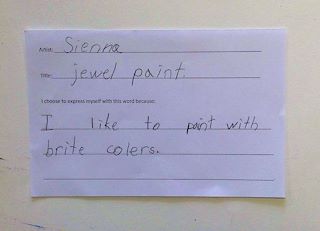 Artist: Sienna
Title: jewel paint.
I choose to express myself with this word because:
I like to paint with
brite colers.